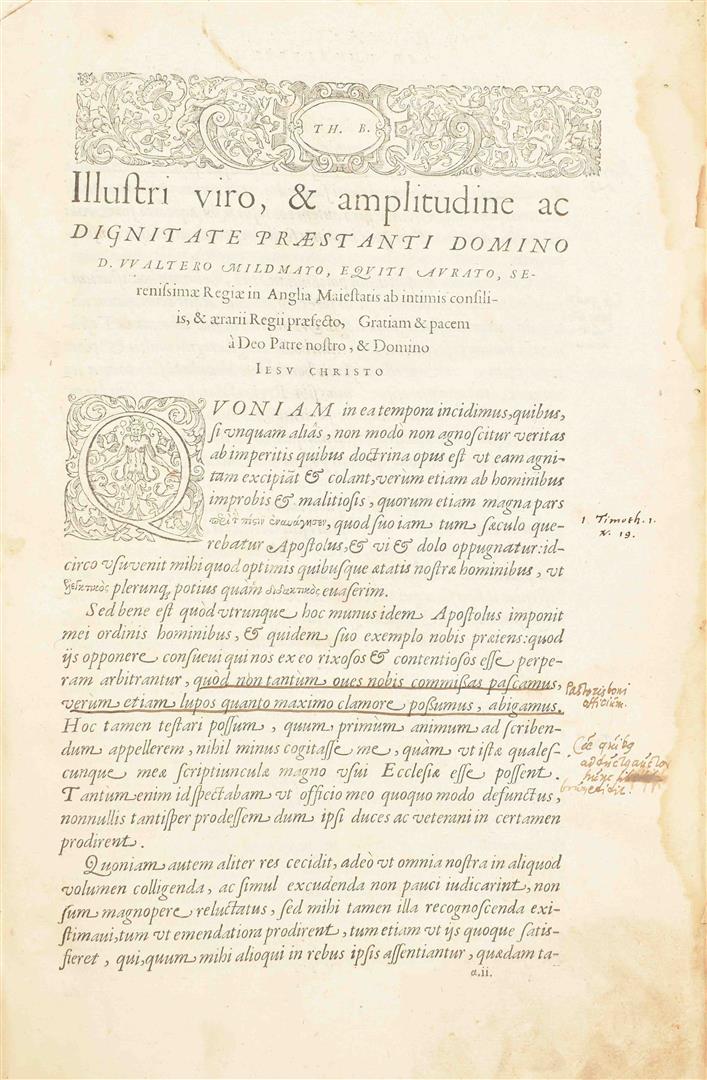 TH. B.
Illustri viro, & amplitudine ac
DIGNITATE PRÆSTANTI DOMINO
D. VVALTERO MILDMAYO, EQVITI AVRATO, SE-
renissimæ Regiæ in Anglia Maiestatis ab intimis consili-
is, & ærarii Regii præfecto, Gratiam & pacem
à Deo Patre nostro, & Domino
IESV CHRISTO
QVONIAM in ea tempora incidimus, quibus,
si vnquam aliâs, non modò non agnoscitur veritas
ab imperitis quibus doctrina opus est vt eam agni-
tam excipiāt & colant, verùm etiam ab hominibus
improbis & malitiosis, quorum etiam magna pars
quod suo iam tum sæculo que-
rebatur Apostolus, & vi & dolo oppugnatur: id-
circo vsuvenit mihi quod optimis quibusque ætatis nostræ hominibus, vt
plerunq, potius quàm διδακτικὸς evaserim.
Sed bene est quòd vtrunque hoc munus idem Apostolus imponit
mei ordinis hominibus, & quidem suo exemplo nobis præiens: quod
ijs opponere consueui qui nos ex eo rixosos & contentiosos esse perpe-
ram arbitrantur, quòd non tantum oues nobis commissas pascamus,
verum etiam lupos quanto maximo clamore possumus, abigamus.
Hoc tamen testari possum, quum primùm animum ad scriben-
dum appellerem, nihil minus cogitasse me, quàm vt istæ quales-
cunque meæ scriptiunculæ magno vsui Ecclesiæ esse possent.
Tantum enim id spectabam vt officio meo quoquo modo defunctus,
nonnullis tantisper prodessem dum ipsi duces ac veterani in certamen
prodirent.
Quoniam autem aliter res cecidit, adeò vt omnia nostra in aliquod
volumen colligenda, ac simul excudenda non pauci iudicarint, non
sum magnopere reluctatus, sed mihi tamen illa recognoscenda exi-
stimaui, tum vt emendatiora prodirent, tum etiam vt ijs quoque satis-
fieret, qui, quum mihi alioqui in rebus ipsis assentiantur, quædam ta-
a.ii.
1 Timoth. 1.
v. 19.
Pastoris boni
officium.